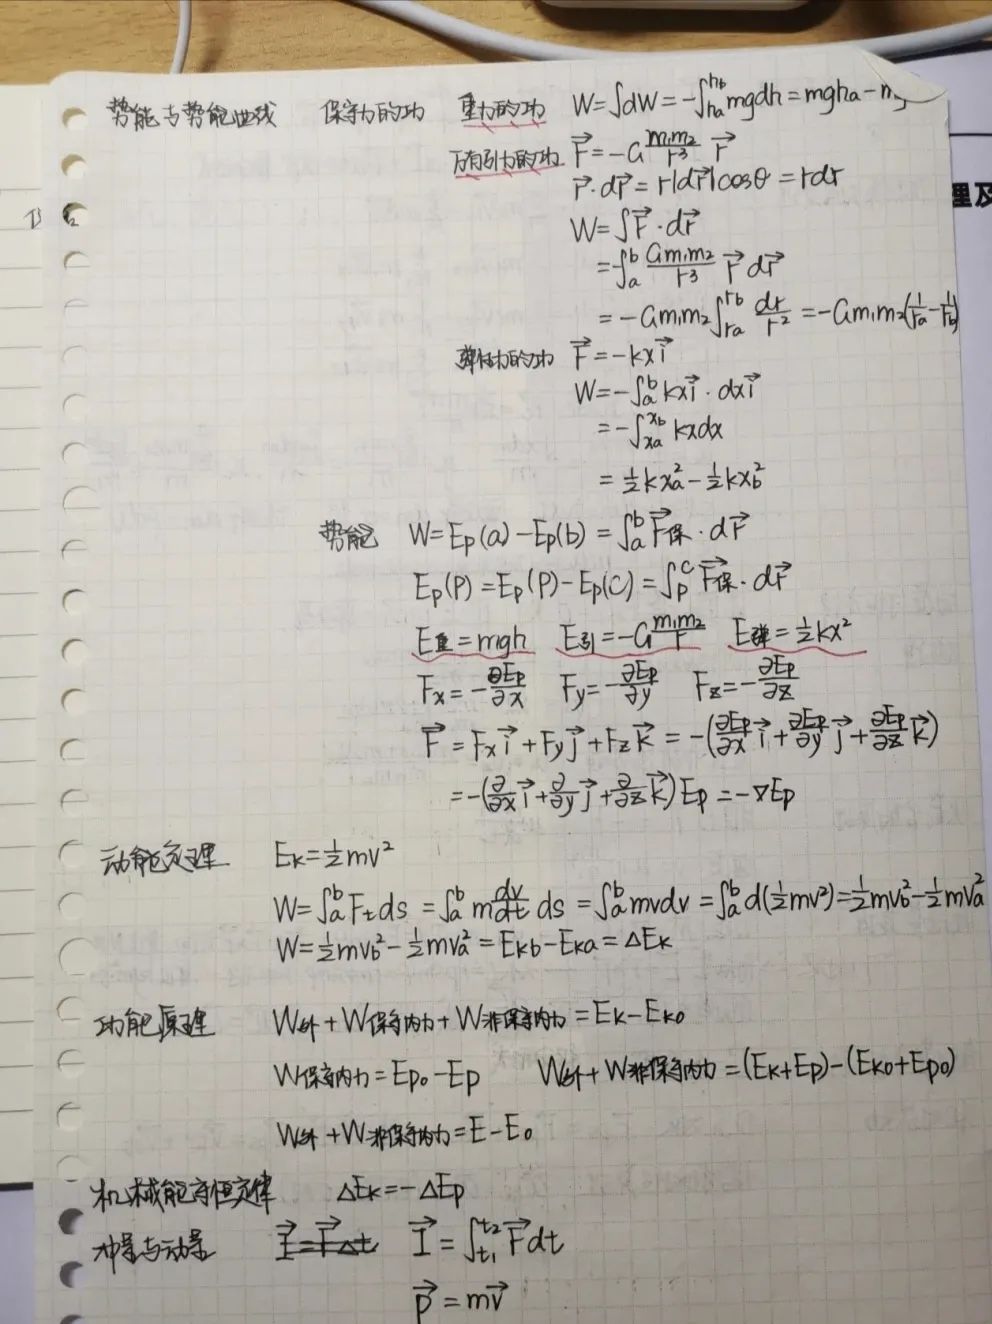 势能与势能曲线 保守力的功 重力的功 W=∫dW=-∫_{ha}^{hb}mgdh=mgha-mg
万有引力的功 \vec{F}=-G\frac{m₁m₂}{r³}\vec{r}
\vec{r}·d\vec{r}=r|d\vec{r}|cosθ=rdr
W=∫\vec{F}·d\vec{r}
=-∫_a^b\frac{Gm₁m₂}{r³}\vec{r}d\vec{r}
=-Gm₁m₂∫_{ra}^{rb}\frac{dr}{r²}=-Gm₁m₂(\frac{1}{ra}-\frac{1}{rb})
弹性力的功 \vec{F}=-kx\vec{i}
W=-∫_a^b kx\vec{i}·dx\vec{i}
=-∫_{xa}^{xb}kxdx
=½kx_a²-½kx_b²
势能 W=Ep(a)-Ep(b)=∫_a^b\vec{F}保·d\vec{r}
Ep(P)=Ep(P)-Ep(C)=∫_p^c\vec{F}保·d\vec{r}
E重=mgh E引=-G\frac{m₁m₂}{r} E弹=½kx²
Fx=-\frac{∂Ep}{∂x} Fy=-\frac{∂Ep}{∂y} Fz=-\frac{∂Ep}{∂z}
\vec{F}=Fx\vec{i}+Fy\vec{j}+Fz\vec{k}=-(\frac{∂Ep}{∂x}\vec{i}+\frac{∂Ep}{∂y}\vec{j}+\frac{∂Ep}{∂z}\vec{k})
=-(\frac{∂}{∂x}\vec{i}+\frac{∂}{∂y}\vec{j}+\frac{∂}{∂z}\vec{k})Ep=-∇Ep
动能定理 Ek=½mv²
W=∫_a^b Ftds=∫_a^b m\frac{dv}{dt}ds=∫_a^b mvdv=∫_a^b d(½mv²)=½mv_b²-½mv_a²
W=½mv_b²-½mv_a²=Ekb-Eka=ΔEk
功能原理 W外+W保守内力+W非保守内力=Ek-Ek₀
W保守内力=Ep₀-Ep W外+W非保守内力=(Ek+Ep)-(Ek₀+Ep₀)
W外+W非保守内力=E-E₀
机械能守恒定律 ΔEk=-ΔEp
冲量与动量 \vec{I}=\vec{F}Δt \vec{I}=∫_{t₁}^{t₂}\vec{F}dt
\vec{p}=m\vec{v}